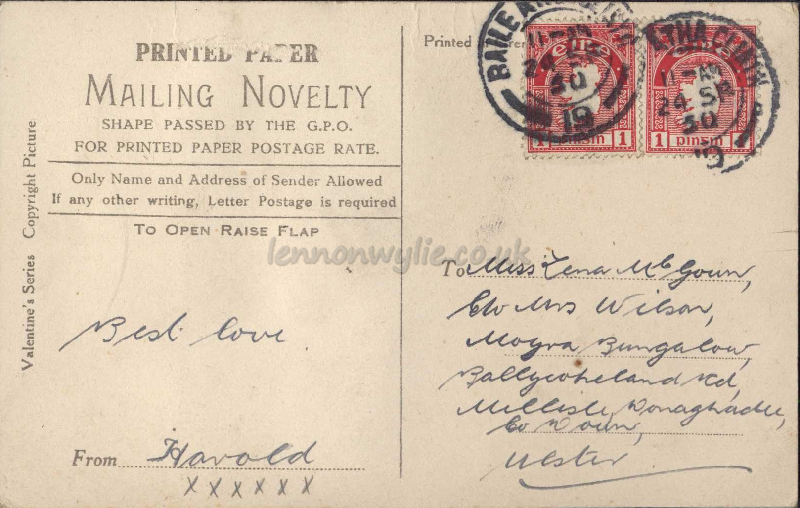 PRINTED PAPER
MAILING NOVELTY
SHAPE PASSED BY THE G.P.O.
FOR PRINTED PAPER POSTAGE RATE.
Only Name and Address of Sender Allowed
If any other writing, Letter Postage is required
TO OPEN RAISE FLAP
Valentine's Series Copyright Picture
Best love
From Harold
x x x x x x
Printed
BAILE ÁTHA CLIATH
11-AM
24 SE
30
19
eire
1 pinsin 1
ATHA CLIATH
11-AM
24 SE
30
19
1 pinsin 1
lennonwylie.co.uk
To Miss Lena McGown,
C/o Mrs Wilson,
Moyra Bungalow,
Ballycopeland Rd,
Millisle, Donaghadee,
Co Down,
Ulster